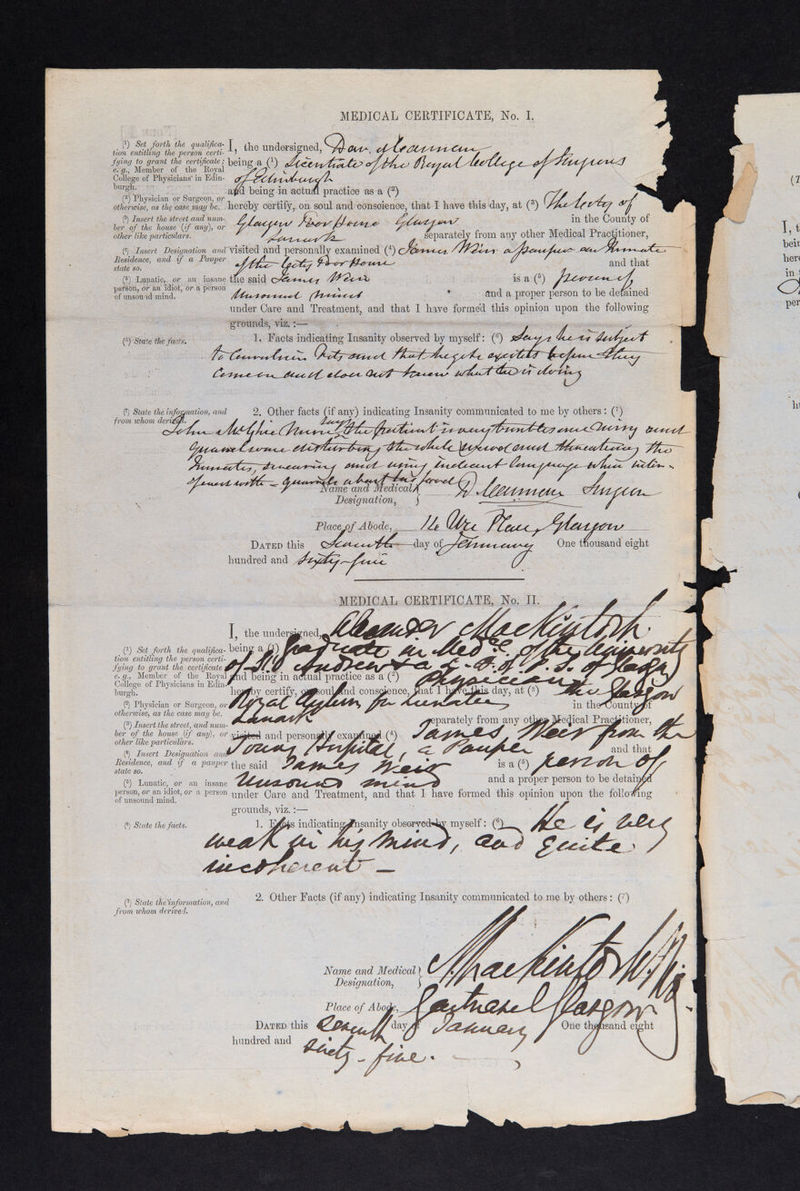 MEDICAL CERTIFICATE, No. I.
(1) Set forth the qualifica-
tion entitling the person certi-
fying to grant the certificate;
e.g., Member of the Royal
College of Physicians in Edin-
burgh.
(2) Physician or Surgeon, or
otherwise, as the case may be.
(3) Insert the street and num-
ber of the house (if any), or
other like particulars.
(4) Insert Designation and
Residence, and if a Pauper
state so.
(5) Lunatic, or an insane
person, or an idiot, or a person
of unsound mind.
(6) State the facts.
(7) State the information, and
from whom derived.
I, the undersigned,
being a (1) Licentiate of the Royal College of Surgeons
of Edinburgh
and being in actual practice as a (2)
hereby certify, on soul and conscience, that I have this day, at (3) The City of
Glasgow Poor House Glasgow in the County of
Lanark separately from any other Medical Practitioner,
visited and personally examined (4) James Weir a pauper an Inmate
of the City Poor House and that
the said James Weir is a (5) person of
Unsound mind and a proper person to be detained
under Care and Treatment, and that I have formed this opinion upon the following
grounds, viz.:—
1. Facts indicating Insanity observed by myself: (6) Says he is subject
to Convulsive fits and that he gets excited before they
come on and does not know what he is doing
2. Other facts (if any) indicating Insanity communicated to me by others: (7)
John McGhie Nurse says the patient is very troublesome noisy and
quarrelsome disturbing the whole ward and threatening the
Inmates, swearing and using indecent language when inter-
fered with - quarrels about his food
Name and Medical
Designation, } Surgeon
Place of Abode, Place, Glasgow
DATED this Seventh day of January One thousand eight
hundred and sixty-five
MEDICAL CERTIFICATE, No. II.
(1) Set forth the qualifica-
tion entitling the person certi-
fying to grant the certificate
e.g., Member of the Royal
College of Physicians in Edin-
burgh.
(2) Physician or Surgeon, or
otherwise, as the case may be.
(3) Insert the street, and num-
ber of the house (if any), or
other like particulars.
(4) Insert Designation and
Residence, and if a pauper
state so.
(5) Lunatic, or an insane
person, or an idiot, or a person
of unsound mind.
(6) State the facts.
(7) State the information, and
from whom derived.
I, the undersigned, Alexander Mackintosh
being a (1) Graduate in Medne of the University
of St Andrews & a L. F. of P. S. of Glasgow
and being in actual practice as a (2) Physician
hereby certify, on soul and conscience, that I have this day, at (3) the Glasgow
Royal Asylum for Lunatics in the County of
Lanark separately from any other Medical Practitioner,
visited and personally examined (4) James Weir from the
Towns Hospital, a Pauper and that
the said James Weir is a (5) person of
Unsound mind and a proper person to be detained
under Care and Treatment, and that I have formed this opinion upon the following
grounds, viz.:—
1. Facts indicating Insanity observed by myself: (6) He is very
weak in his mind, and quite
incoherent —
2. Other Facts (if any) indicating Insanity communicated to me by others: (7)
Name and Medical
Designation, } Mackintosh
Place of Abode, Gartnavel Glasgow
DATED this Seventh day of January One thousand eight
hundred and sixty-five.
I, t